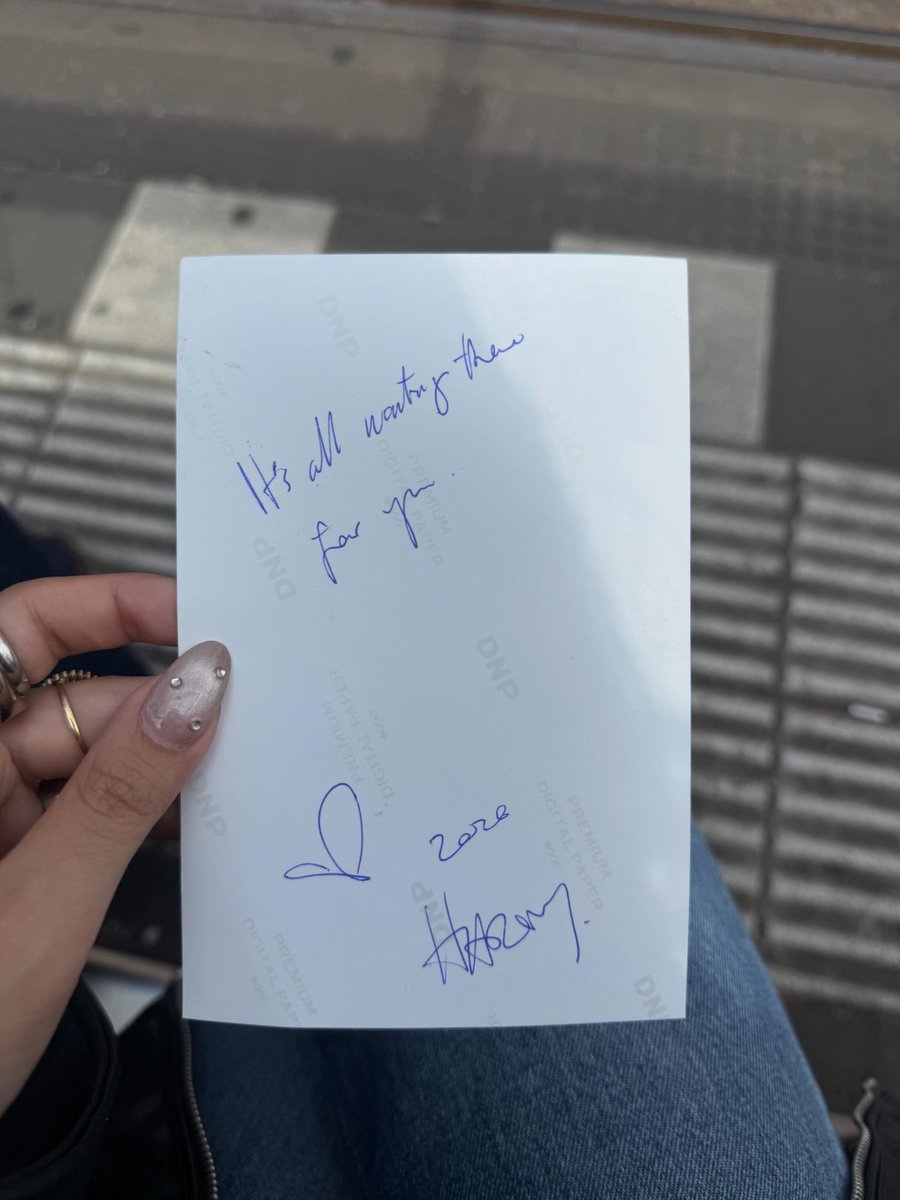 DNP
It's all waiting there
for you.
PREMIUM
DIGITAL PAPER
DNP
DNP
PREMIUM
DIGITAL PAPER
DNP
PREMIUM
DIGITAL PAPER
DNP
HARRY.
PREMIUM
DIGITAL PAPER
DNP